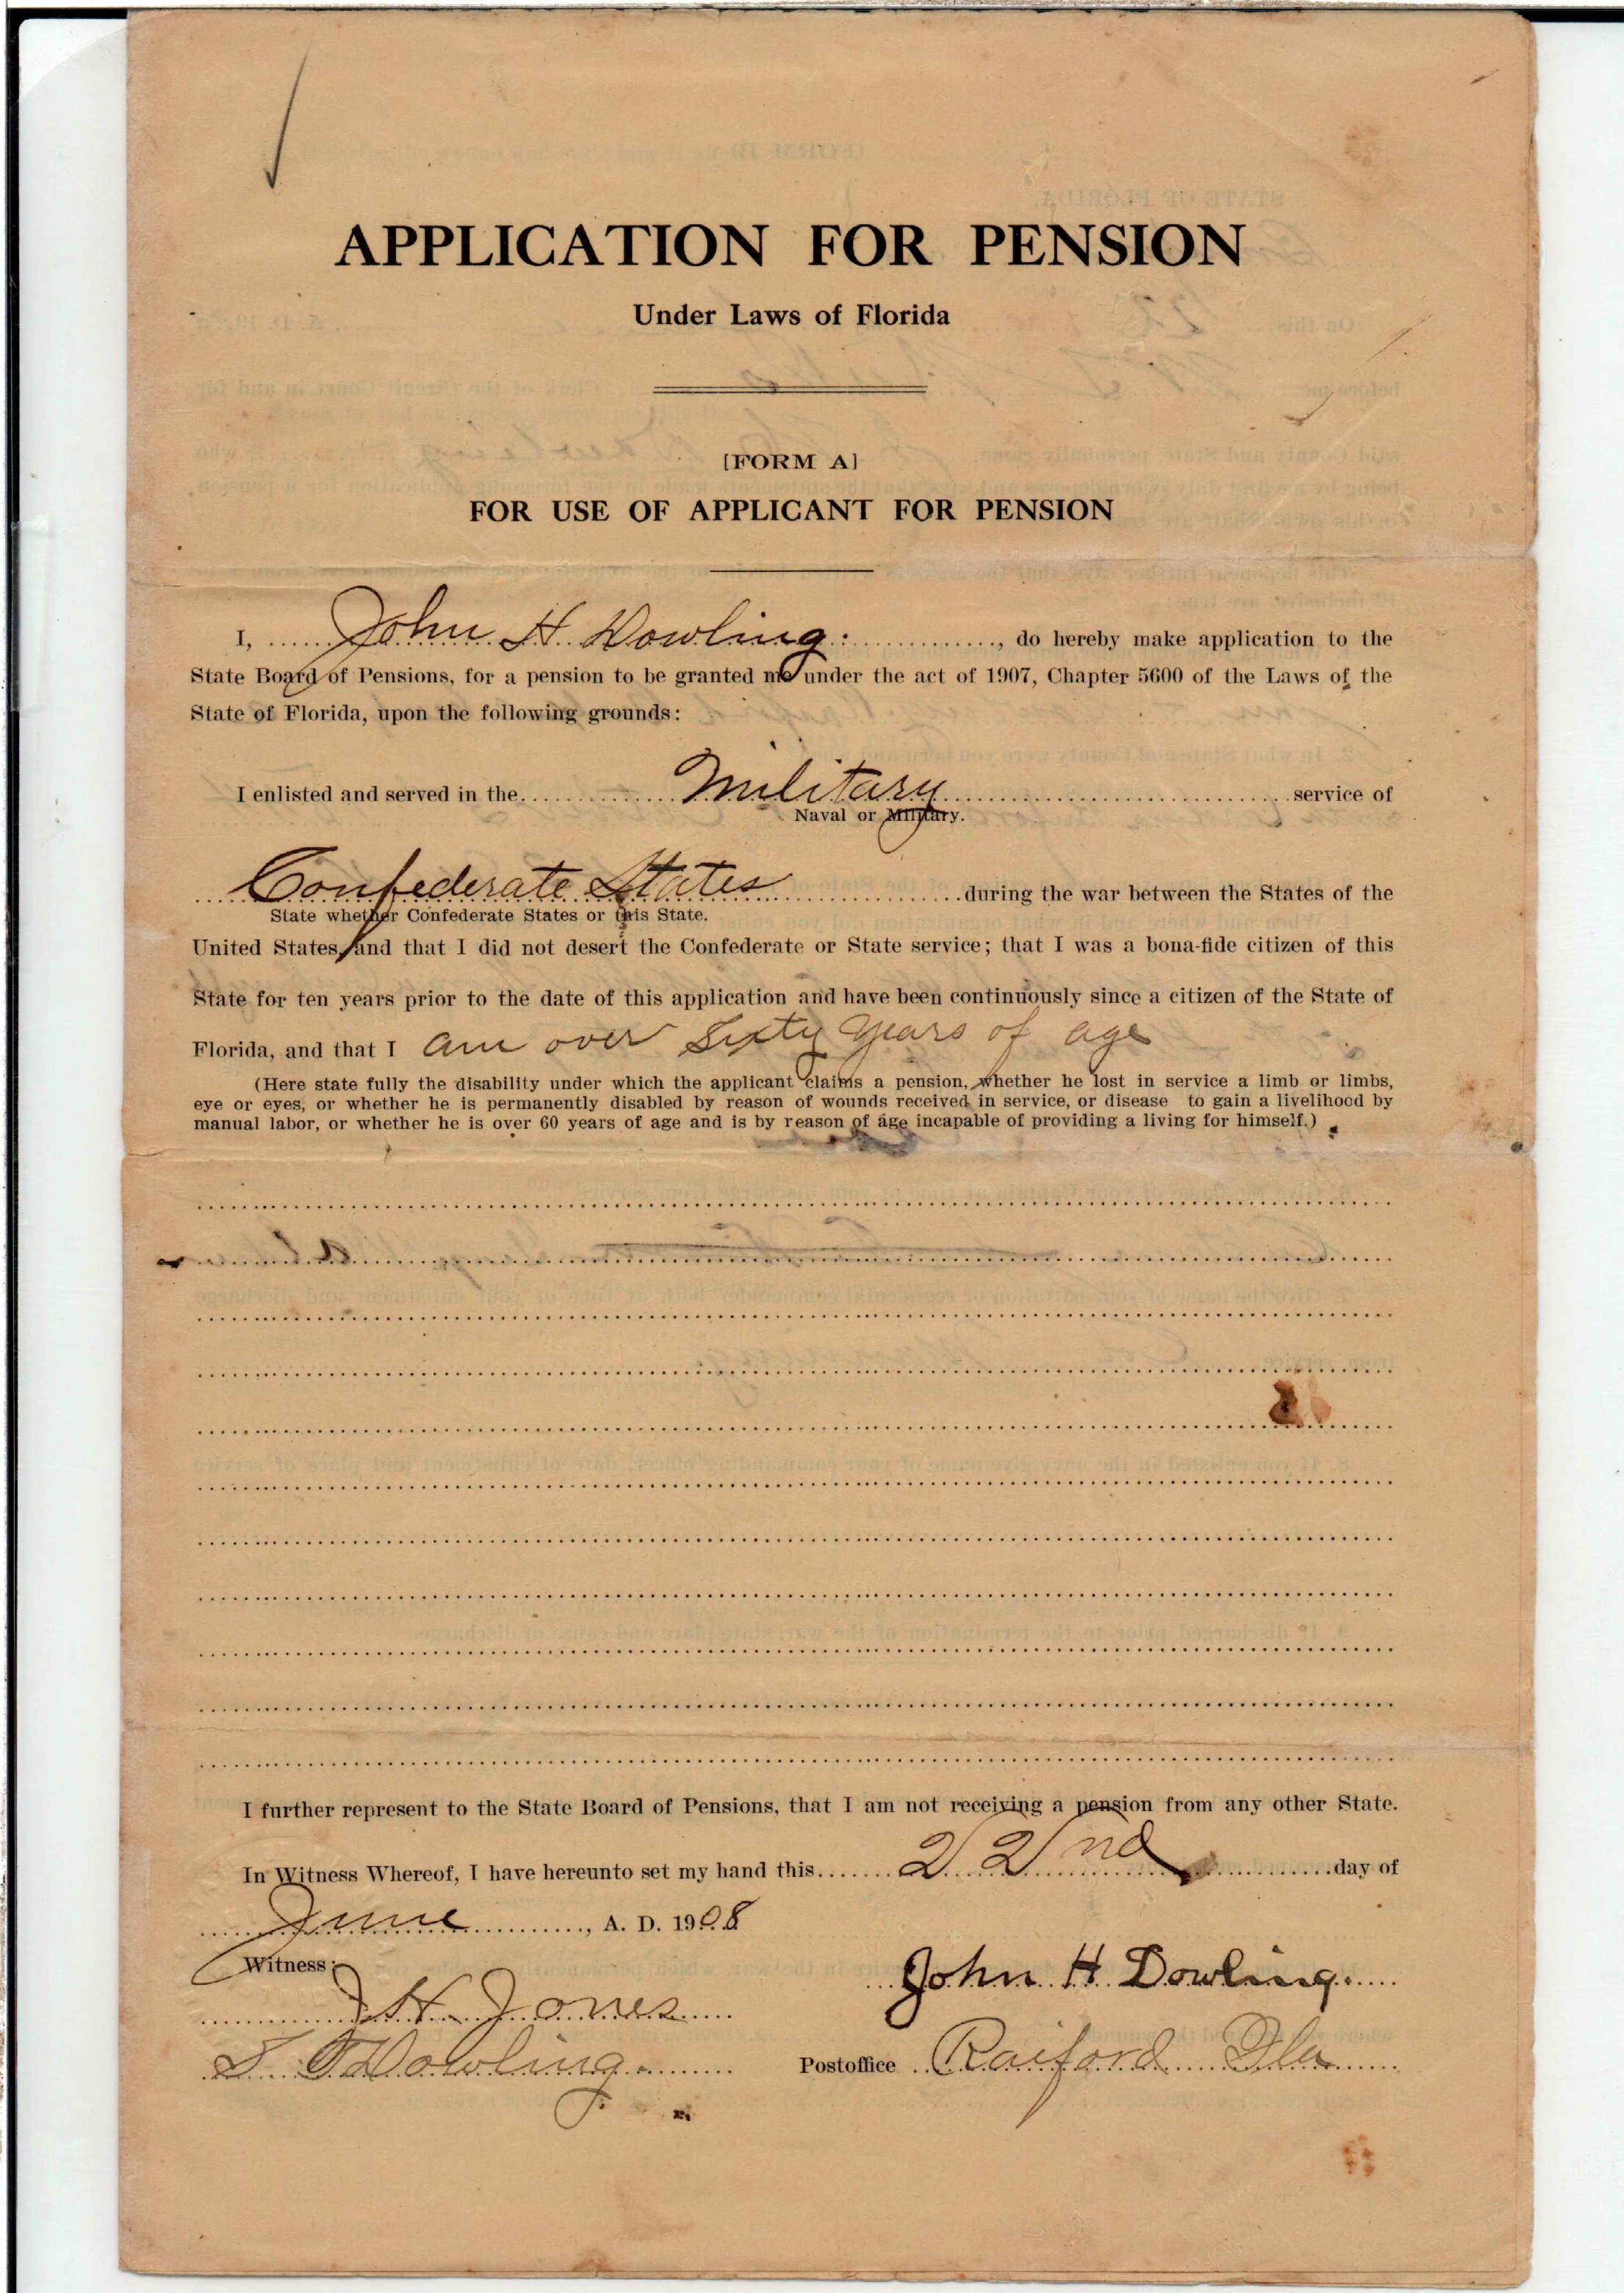 APPLICATION FOR PENSION
Under Laws of Florida
[FORM A]
FOR USE OF APPLICANT FOR PENSION
I, John H Dowling, do hereby make application to the
State Board of Pensions, for a pension to be granted me under the act of 1907, Chapter 5600 of the Laws of the
State of Florida, upon the following grounds:
I enlisted and served in the Military service of
Naval or Military.
Confederate States during the war between the States of the
State whether Confederate States or this State.
United States, and that I did not desert the Confederate or State service; that I was a bona-fide citizen of this
State for ten years prior to the date of this application and have been continuously since a citizen of the State of
Florida, and that I am over Sixty years of age
(Here state fully the disability under which the applicant claims a pension, whether he lost in service a limb or limbs,
eye or eyes, or whether he is permanently disabled by reason of wounds received in service, or disease to gain a livelihood by
manual labor, or whether he is over 60 years of age and is by reason of age incapable of providing a living for himself.)
I further represent to the State Board of Pensions, that I am not receiving a pension from any other State.
In Witness Whereof, I have hereunto set my hand this 22nd day of
June, A. D. 1908
Witness:
John H Dowling.
J H Jones
Dowling.
Postoffice Raiford Fla